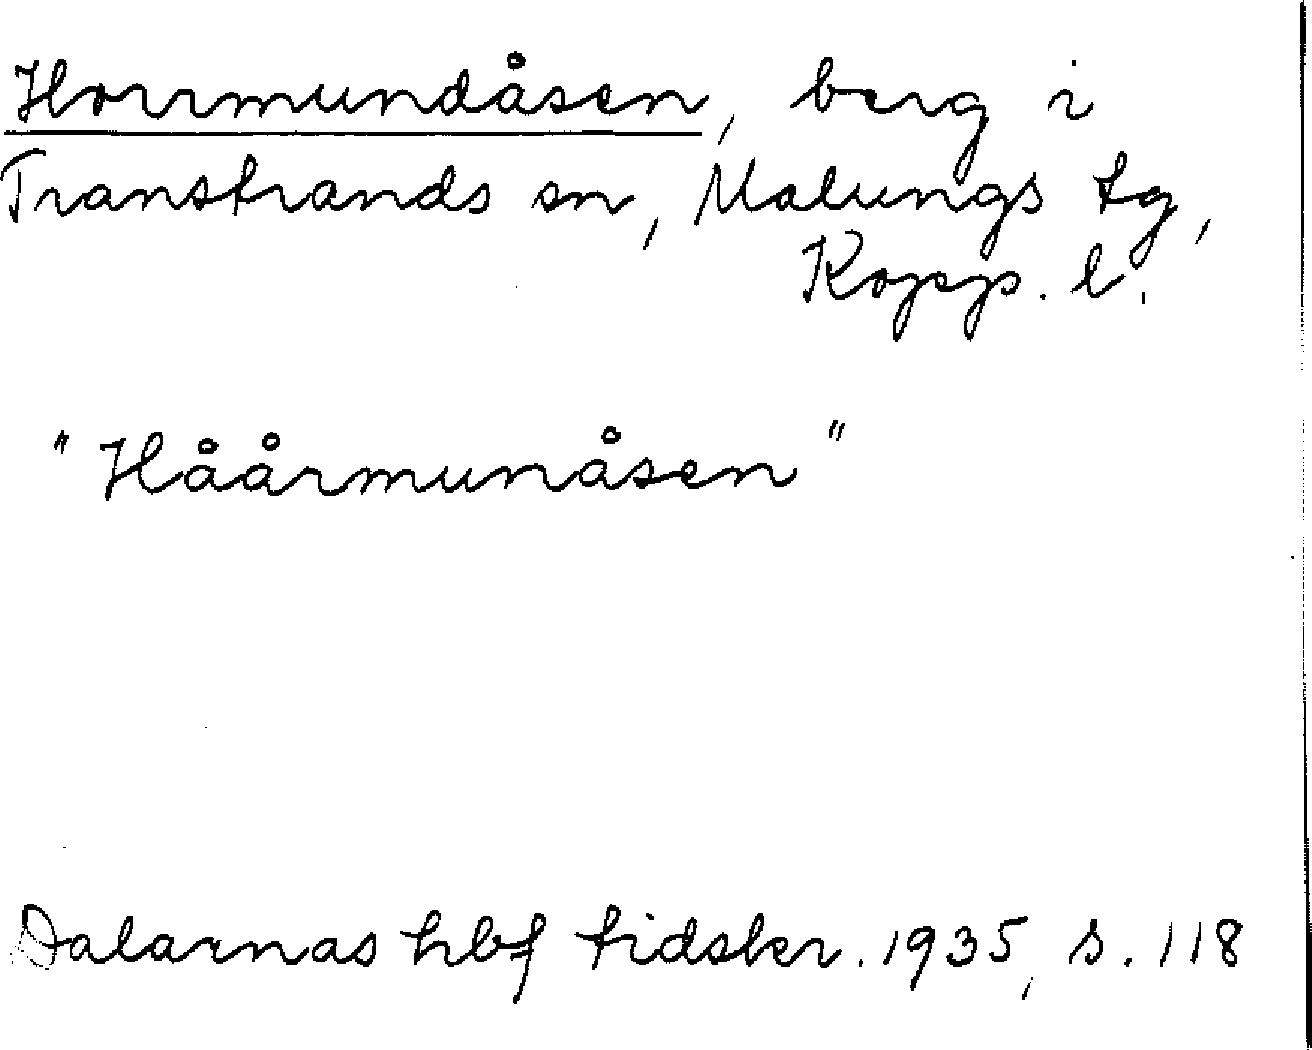 Horrmundåsen, berg i
Transtrands sn, Malungs tg,
Kopp. l.
"Håårmunåsen"
Dalarnas hbf tidskr. 1935, s. 118